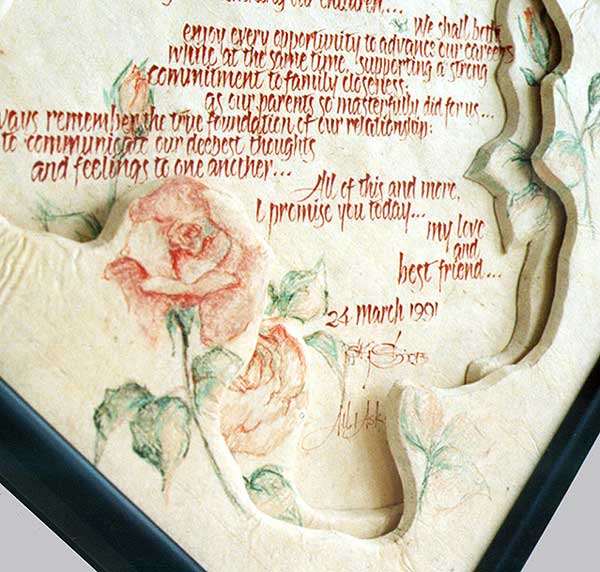 our children...
We shall both
enjoy every opportunity to advance our careers
while, at the same time, supporting a strong
commitment to family closeness;
as our parents so masterfully did for us...
remember the true foundation of our relationship:
to communicate our deepest thoughts
and feelings to one another...
All of this and more,
I promise you today...
my love
and
best friend...
24 march 1991